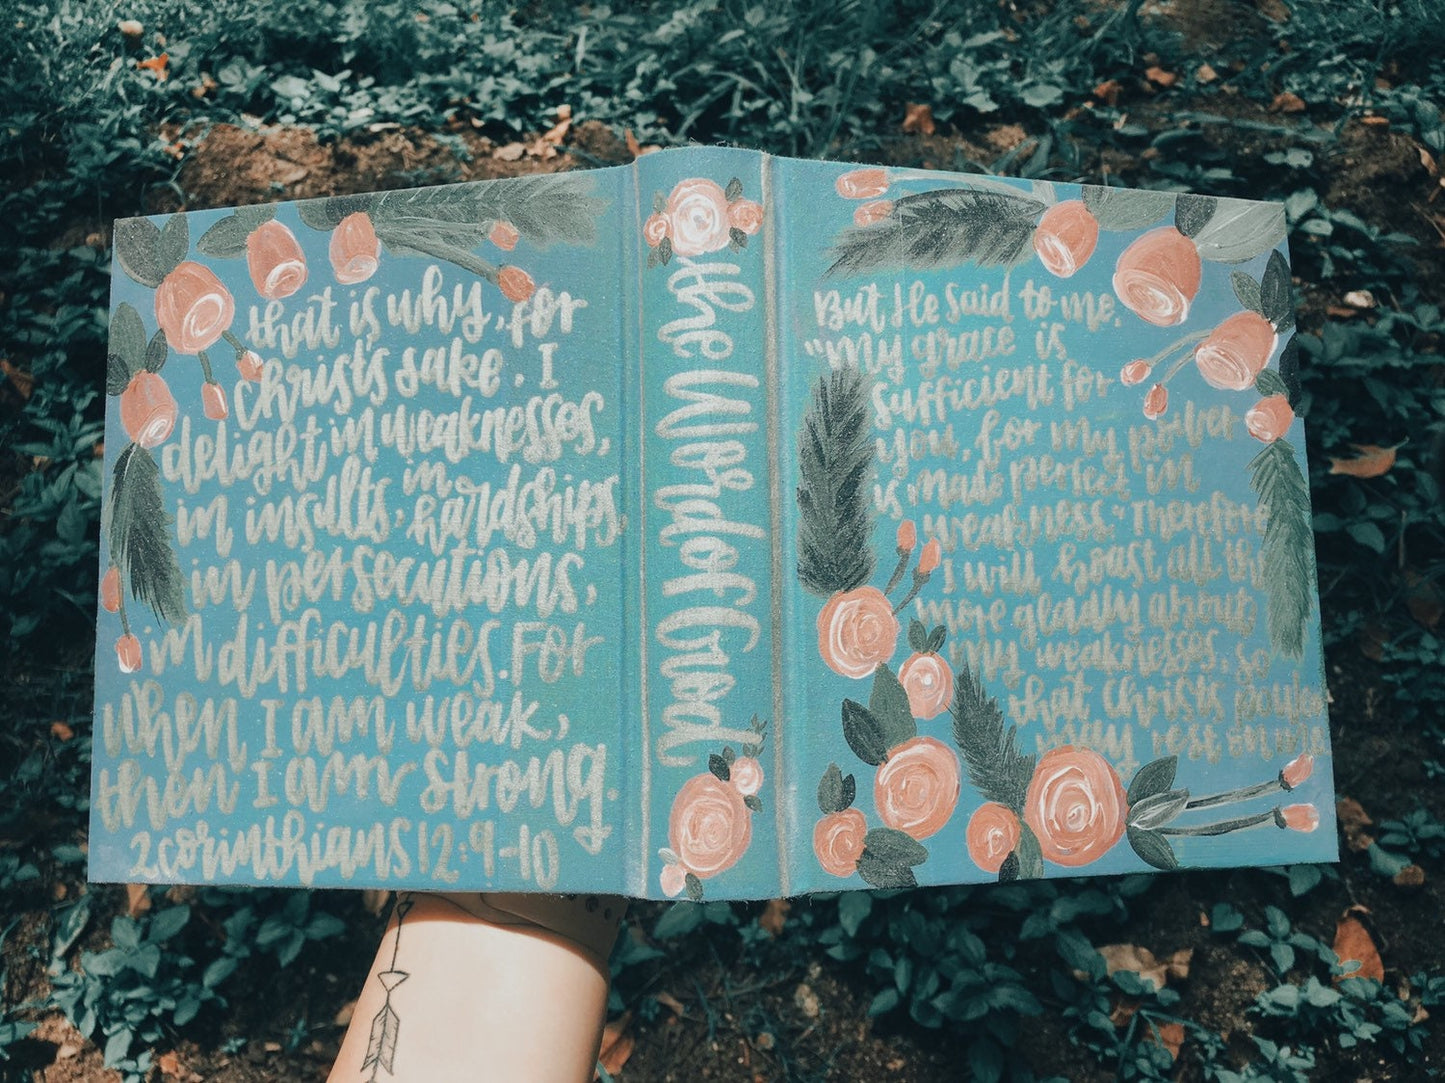 that is why, for
Christ's sake. I
delight in weaknesses,
in insults, in hardships,
in persecutions,
in difficulties. For
when I am weak,
then I am strong.
2 corinthians 12:9-10
the Word of God
But He said to me,
"My grace is
sufficient for
you, for my power
is made perfect in
weakness." Therefore
I will boast all the
more gladly about
my weaknesses, so
that Christ's power
may rest on me